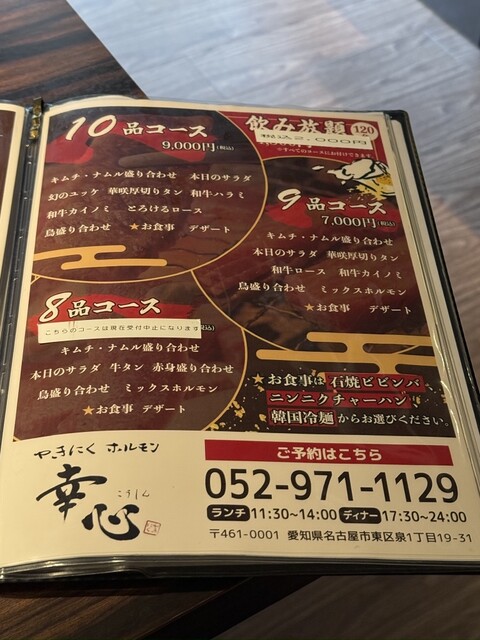 10品コース
9,000円(税込)
キムチ・ナムル盛り合わせ 本日のサラダ
幻のユッケ 華咲厚切りタン 和牛ハラミ
和牛カイノミ とろけるロース
鳥盛り合わせ ★お食事 デザート
飲み放題 120分
税込2,000円
※すべてのコースにお付けできます。
9品コース
7,000円(税込)
キムチ・ナムル盛り合わせ
本日のサラダ 華咲厚切りタン
和牛ロース 和牛カイノミ
鳥盛り合わせ ミックスホルモン
★お食事 デザート
8品コース
こちらのコースは現在受付中止になります
キムチ・ナムル盛り合わせ
本日のサラダ 牛タン 赤身盛り合わせ
鳥盛り合わせ ミックスホルモン
★お食事 デザート
★お食事は石焼ビビンバ
ニンニクチャーハン
韓国冷麺からお選びください。
やきにく ホルモン
幸心
こうしん
ご予約はこちら
052-971-1129
ランチ 11:30~14:00 ディナー 17:30~24:00
〒461-0001 愛知県名古屋市東区泉1丁目19-31